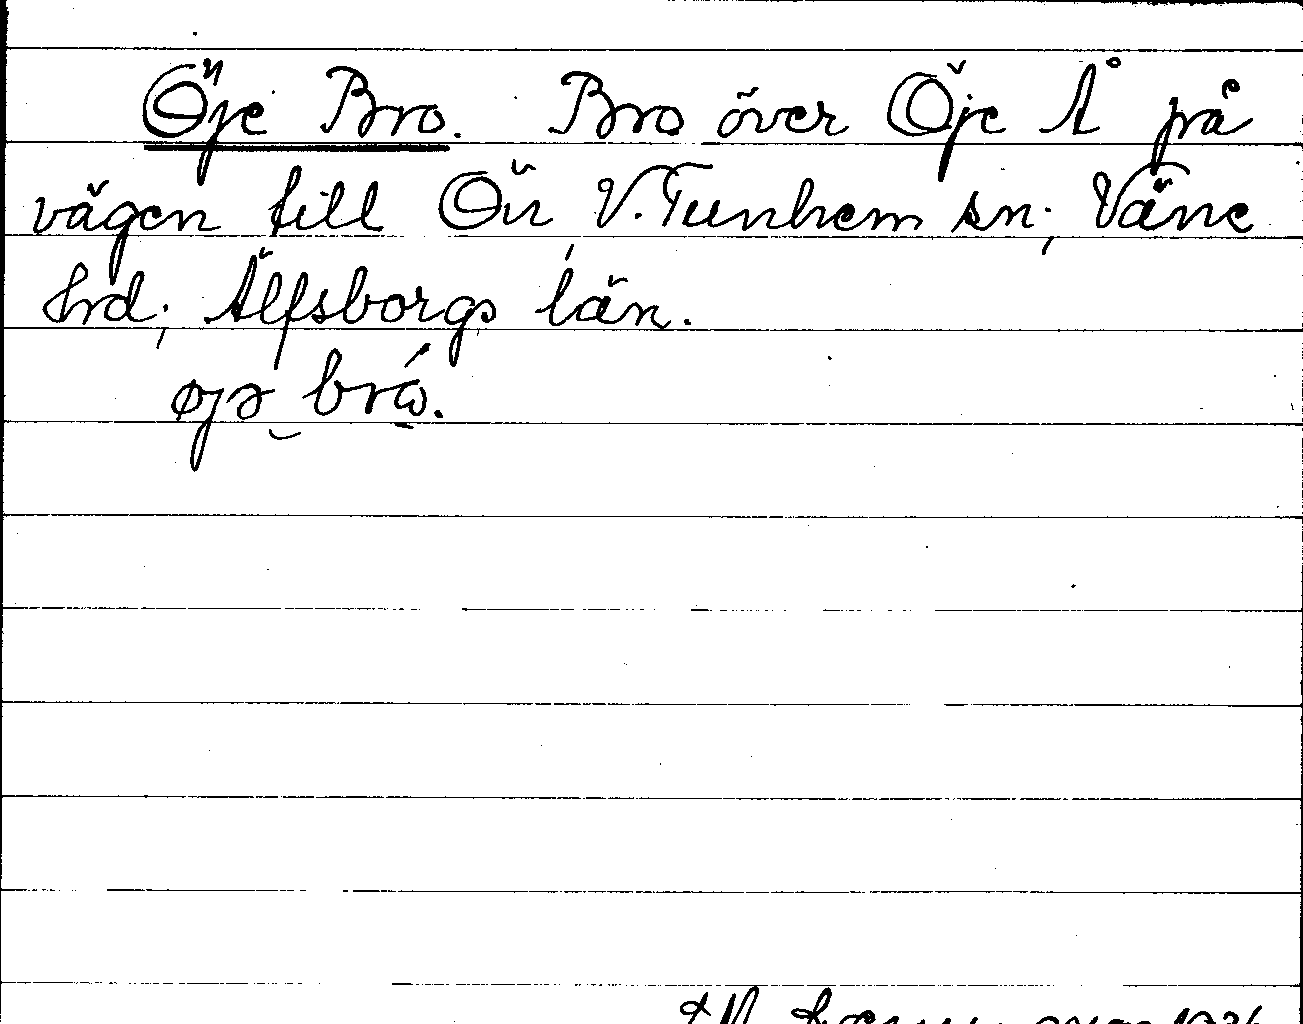 Öje Bro. Bro över Öje Å på
vägen till Ön, V. Tunhem sn; Väne
hrd; Älfsborgs län.
øjə brώ.